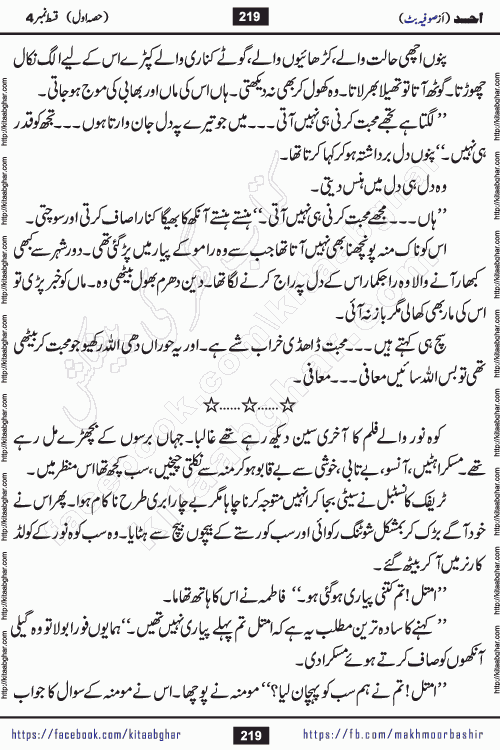 احد (از صوفیہ بٹ) 219 (حصہ اول) قسط نمبر 4
پنوں اچھی حالت والے، کڑھائیوں والے، گوٹے کناری والے کپڑے اس کے لیے الگ نکال
چھوڑتا۔ گوٹھ آتا تو تھیلا بھر لاتا۔ وہ کھول کر بھی نہ دیکھتی۔ ہاں اس کی ماں اور بھابی کی موج ہو جاتی۔
’’لگتا ہے تجھے محبت کرنی ہی نہیں آتی۔۔۔ میں جو تیرے پہ دل جان وارتا ہوں۔۔۔ تجھ کو قدر
ہی نہیں۔‘‘ پنوں دل برداشتہ ہو کر کہا کرتا تھا۔
وہ دل ہی دل میں ہنس دیتی۔
’’ہاں۔۔۔۔ مجھے محبت کرنی ہی نہیں آتی۔‘‘ ہنستے ہنستے آنکھ کا بھیگا کنارا صاف کرتی اور سوچتی۔
اس کو ناک منہ پونچھنا بھی نہیں آتا تھا جب سے وہ رامو کے پیار میں پڑ گئی تھی۔ دور شہر سے کبھی
کبھار آنے والا وہ راجکمار اس کے دل پہ راج کرنے لگا تھا۔ دین دھرم بھول بیٹھی وہ۔ ماں کو خبر پڑی تو
اس کی مار بھی کھالی مگر باز نہ آئی۔
سچ ہی کہتے ہیں۔۔۔ محبت ڈاھڈی خراب شے ہے۔ اور یہ حوراں دھی اللہ رکھیو جو محبت کر بیٹھی
تھی تو بس اللہ سائیں معافی۔۔۔ معافی۔
☆......☆......☆
کوہ نور والے فلم کا آخری سین دیکھ رہے تھے غالبا۔ جہاں برسوں کے بچھڑے مل رہے
تھے۔ مسکراہٹیں، آنسو، بے تابی، خوشی سے بے قابو ہو کر منہ سے نکلتی چیخیں، سب کچھ تھا اس منظر میں۔
ٹریفک کانسٹبل نے سیٹی بجا کر انہیں متوجہ کرنا چاہا مگر بے چارا بری طرح ناکام ہوا۔ پھر اس نے
خود آگے بڑھ کر بمشکل شوٹنگ رکوائی اور سب کو رستے کے بیچوں بیچ سے ہٹایا۔ وہ سب کوہ نور کے کولڈ
کارنر میں آ کر بیٹھ گئے۔
’’امتل! تم کتنی پیاری ہو گئی ہو۔‘‘ فاطمہ نے اس کا ہاتھ تھاما۔
’’کہنے کا سادہ ترین مطلب یہ ہے کہ امتل تم پہلے پیاری نہیں تھیں۔‘‘ ہمایوں فورا بولا تو وہ گیلی
آنکھوں کو صاف کرتے ہوئے مسکرا دی۔
’’امتل! تم نے ہم سب کو پہچان لیا؟‘‘ مومنہ نے پوچھا۔ اس نے مومنہ کے سوال کا جواب
https://facebook.com/kitaabghar 219 https://fb.com/makhmoorbashir
http://kitaabghar.com